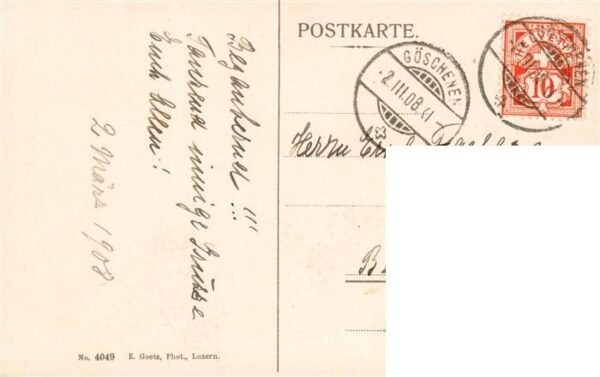 POSTKARTE.
HELVETIA
10
GÖSCHENEN
2.III.08.
Herrn
Bezaubernd!!!
Tausend innige Grüsse
Euch Allen!
2 März 1908.
No. 4049 E. Goetz, Phot., Luzern.